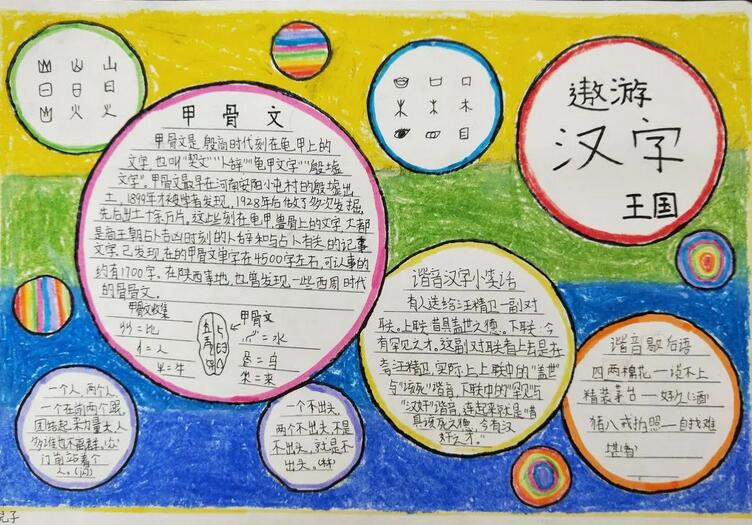 山
日
火
口
木
目
遨游
汉字
王国
甲骨文
甲骨文是殷商时代刻在龟甲上的
文字,也叫“契文”“卜辞”“龟甲文字”“殷墟
文字”。甲骨文最早在河南安阳小屯村的殷墟出
土,1899年才被学者发现,1928年后做了多次发掘,
先后出土十余万片。这些刻在龟甲、兽骨上的文字大都
是商王朝占卜吉凶时刻的人
文字。已发现在的甲骨文单字在4500字左右,可认事的
约有1700字。在陕西等地,也曾发现一些西周时代
的骨骨文。
甲骨文收集
=比
=人
=牛
甲骨文
=水
=来
谐音汉字小笑话
有人送给汪精卫一副对
联。上联:昔具盖世之德。下联:今
有罕见之才。这副对联看上去是在
夸汪精卫,实际上,上联中的“盖世”
与“该死”谐音,下联中的“罕见”与
“汉奸”谐音,连起来就是“昔
具该死之德,今有汉
奸之才。
谐音歇后语
四两棉花——谈不上
精装茅台——好久(酒)
猪八戒拍照——自找难
堪(看)
一个人,两个人,
一个在前两个跟,
团结起来力量大,人
多
门前站着个
人。(闪)
一个不出头,
两个不出头,不是
不出头,就是不
出头。(林)